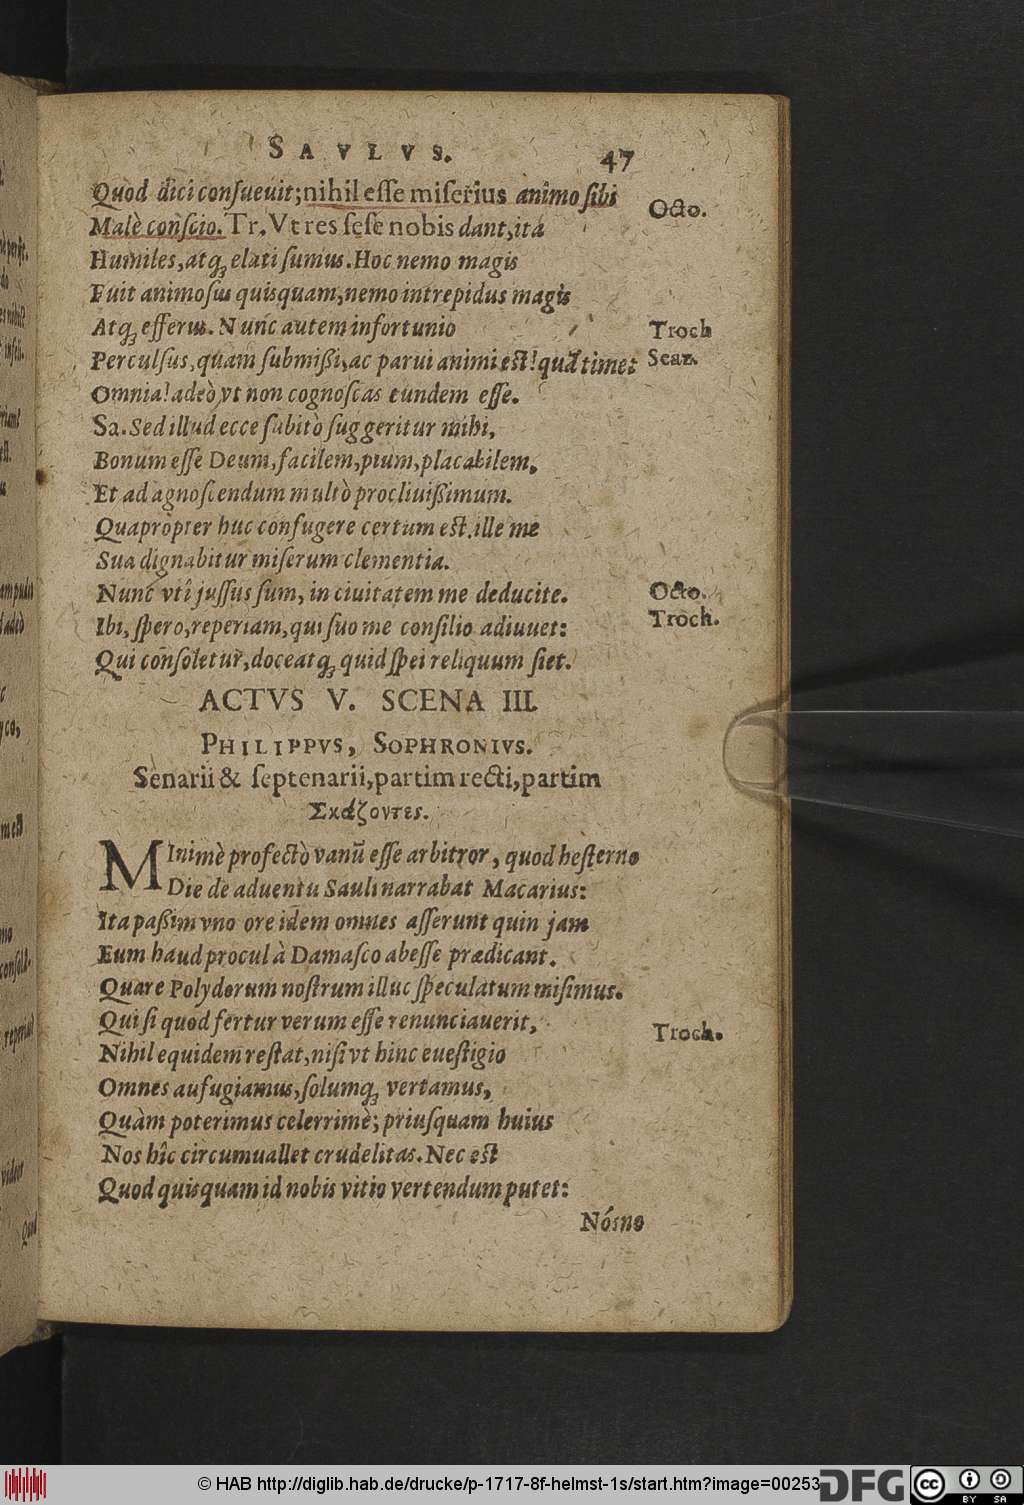 SAVLVS. 47
Quòd dici consueuit; nihil esse miserius animo sibi
Octo.
Malè conscio. Tr. Vt res sese nobis dant, ita
Humiles, atq; elati sumus. Hoc nemo magis
Fuit animosus quisquam, nemo intrepidus magis
Atq; efferus. Nunc autem infortunio
Troch
Perculsus, quam submißi, ac parui animi est! quã timet
Scaz.
Omnia! adeò vt non cognoscas eundem esse.
Sa. Sed illud ecce subitò suggeritur mihi,
Bonum esse Deum, facilem, pium, placabilem,
Et ad agnoscendum multò procliuißimum.
Quapropter huc confugere certum est. ille me
Sua dignabitur miserum clementia.
Nunc vti jussus sum, in ciuitatem me deducite.
Octo.
Ibi, spero, reperiam, qui suo me consilio adiuuet:
Troch.
Qui consoletur, doceatq; quid spei reliquum siet.
ACTVS V. SCENA III.
PHILIPPVS, SOPHRONIVS.
Senarii & septenarii, partim recti, partim
Σκάζοντες.
MInimè profectò vanũ esse arbitror, quod hesterno
Die de aduentu Sauli narrabat Macarius:
Ita paßim vno ore idem omnes asserunt quin jam
Eum haud procul à Damasco abesse prædicant.
Quare Polydorum nostrum illuc speculatum misimus.
Qui si quod fertur verum esse renunciauerit,
Troch.
Nihil equidem restat, nisi vt hinc euestigio
Omnes aufugiamus, solumq; vertamus,
Quàm poterimus celerrimè; priusquam huius
Nos hîc circumuallet crudelitas. Nec est
Quod quisquam id nobis vitio vertendum putet:
Nósne
© HAB http://diglib.hab.de/drucke/p-1717-8f-helmst-1s/start.htm?image=00253
DFG
cc
BY SA